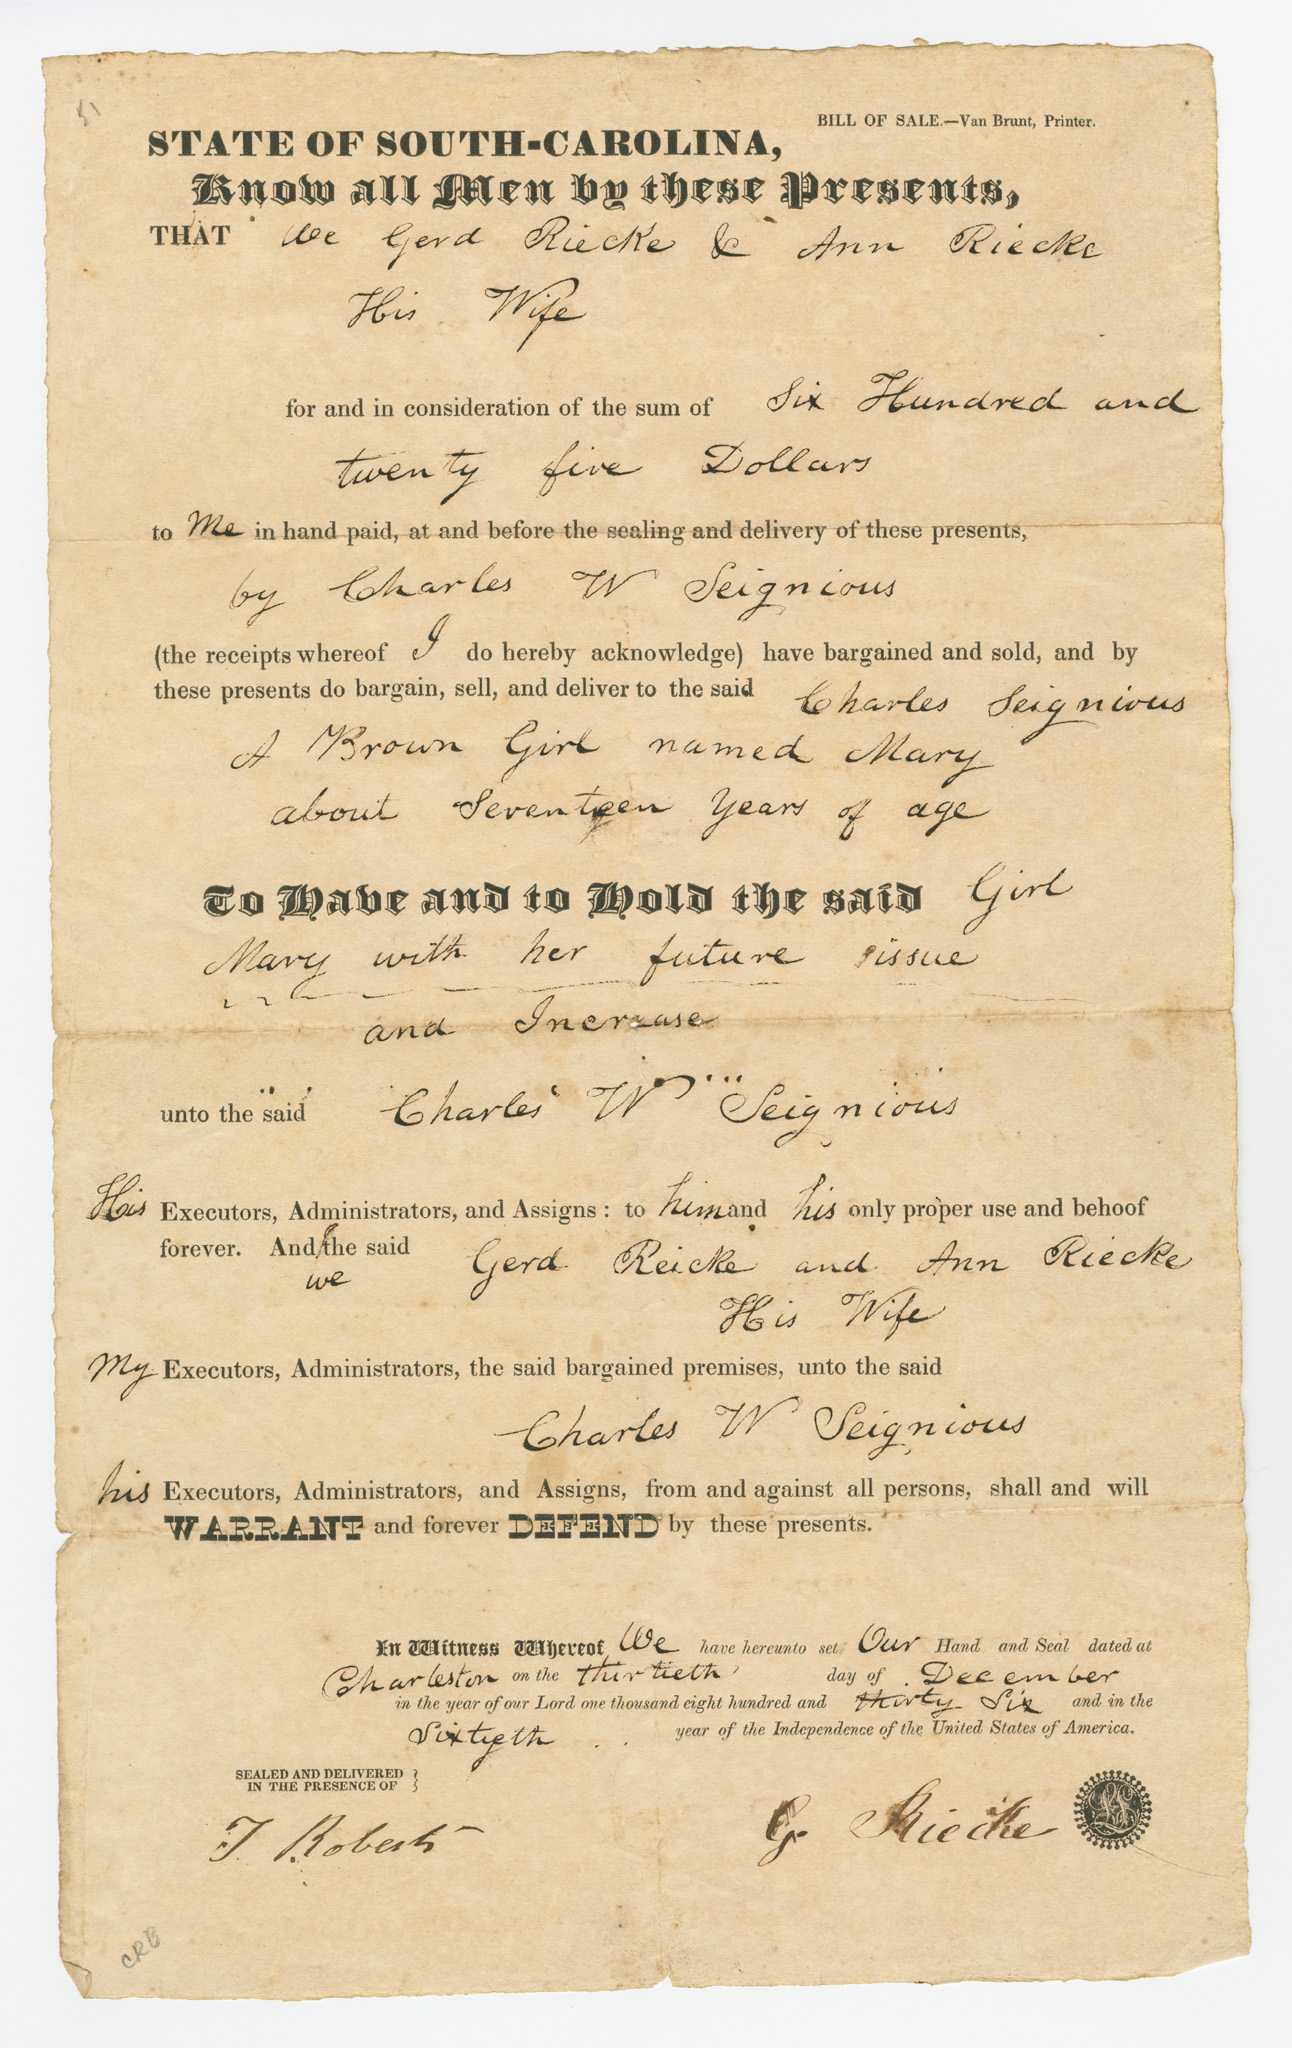 51
BILL OF SALE.—Van Brunt, Printer.
STATE OF SOUTH-CAROLINA,
Know all Men by these Presents,
THAT We Gerd Riecke & Ann Riecke
His Wife
for and in consideration of the sum of Six Hundred and
twenty five Dollars
to Me in hand paid, at and before the sealing and delivery of these presents,
by Charles W Seignious
(the receipts whereof I do hereby acknowledge) have bargained and sold, and by
these presents do bargain, sell, and deliver to the said Charles Seignious
A Brown Girl named Mary
about Seventeen Years of age
To Have and to Hold the said Girl
Mary with her future issue
and Increase
unto the said Charles W Seignious
His Executors, Administrators, and Assigns: to him and his only proper use and behoof
forever. And the said Gerd Reicke and Ann Riecke
we
His Wife
My Executors, Administrators, the said bargained premises, unto the said
Charles W Seignious
his Executors, Administrators, and Assigns, from and against all persons, shall and will
WARRANT and forever DEFEND by these presents.
In Witness Whereof, We have hereunto set Our Hand and Seal dated at
Charleston on the thirtieth day of December
in the year of our Lord one thousand eight hundred and thirty Six and in the
Sixtyeth year of the Independence of the United States of America.
SEALED AND DELIVERED
IN THE PRESENCE OF
T Roberts
G. Riecke
LS
CRB